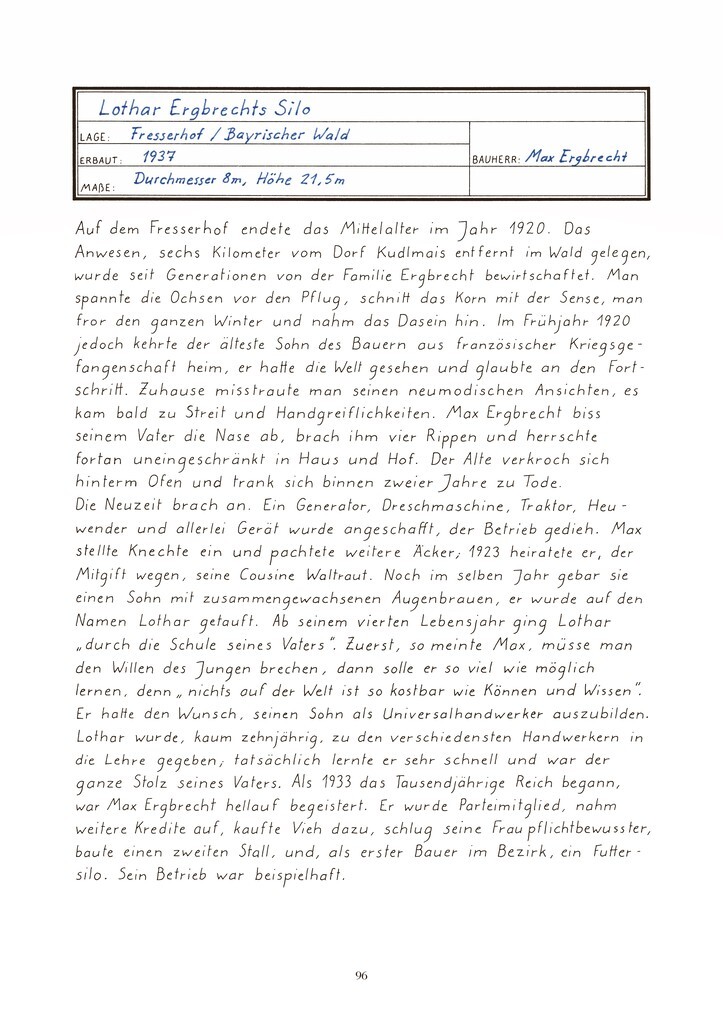 Lothar Ergbrechts Silo
LAGE: Fresserhof / Bayrischer Wald
ERBAUT: 1937
BAUHERR: Max Ergbrecht
MAßE: Durchmesser 8m, Höhe 21,5m
Auf dem Fresserhof endete das Mittelalter im Jahr 1920. Das
Anwesen, sechs Kilometer vom Dorf Kudlmais entfernt im Wald gelegen,
wurde seit Generationen von der Familie Ergbrecht bewirtschaftet. Man
spannte die Ochsen vor den Pflug, schnitt das Korn mit der Sense, man
fror den ganzen Winter und nahm das Dasein hin. Im Frühjahr 1920
jedoch kehrte der älteste Sohn des Bauern aus französischer Kriegsge-
fangenschaft heim, er hatte die Welt gesehen und glaubte an den Fort-
schritt. Zuhause misstraute man seinen neumodischen Ansichten, es
kam bald zu Streit und Handgreiflichkeiten. Max Ergbrecht biss
seinem Vater die Nase ab, brach ihm vier Rippen und herrschte
fortan uneingeschränkt in Haus und Hof. Der Alte verkroch sich
hinterm Ofen und trank sich binnen zweier Jahre zu Tode.
Die Neuzeit brach an. Ein Generator, Dreschmaschine, Traktor, Heu-
wender und allerlei Gerät wurde angeschafft, der Betrieb gedieh. Max
stellte Knechte ein und pachtete weitere Äcker; 1923 heiratete er, der
Mitgift wegen, seine Cousine Waltraut. Noch im selben Jahr gebar sie
einen Sohn mit zusammengewachsenen Augenbrauen, er wurde auf den
Namen Lothar getauft. Ab seinem vierten Lebensjahr ging Lothar
„durch die Schule seines Vaters“. Zuerst, so meinte Max, müsse man
den Willen des Jungen brechen, dann solle er so viel wie möglich
lernen, denn „nichts auf der Welt ist so kostbar wie Können und Wissen“.
Er hatte den Wunsch, seinen Sohn als Universalhandwerker auszubilden.
Lothar wurde, kaum zehnjährig, zu den verschiedensten Handwerkern in
die Lehre gegeben; tatsächlich lernte er sehr schnell und war der
ganze Stolz seines Vaters. Als 1933 das Tausendjährige Reich begann,
war Max Ergbrecht hellauf begeistert. Er wurde Parteimitglied, nahm
weitere Kredite auf, kaufte Vieh dazu, schlug seine Frau pflichtbewusster,
baute einen zweiten Stall, und, als erster Bauer im Bezirk, ein Futter-
silo. Sein Betrieb war beispielhaft.
96